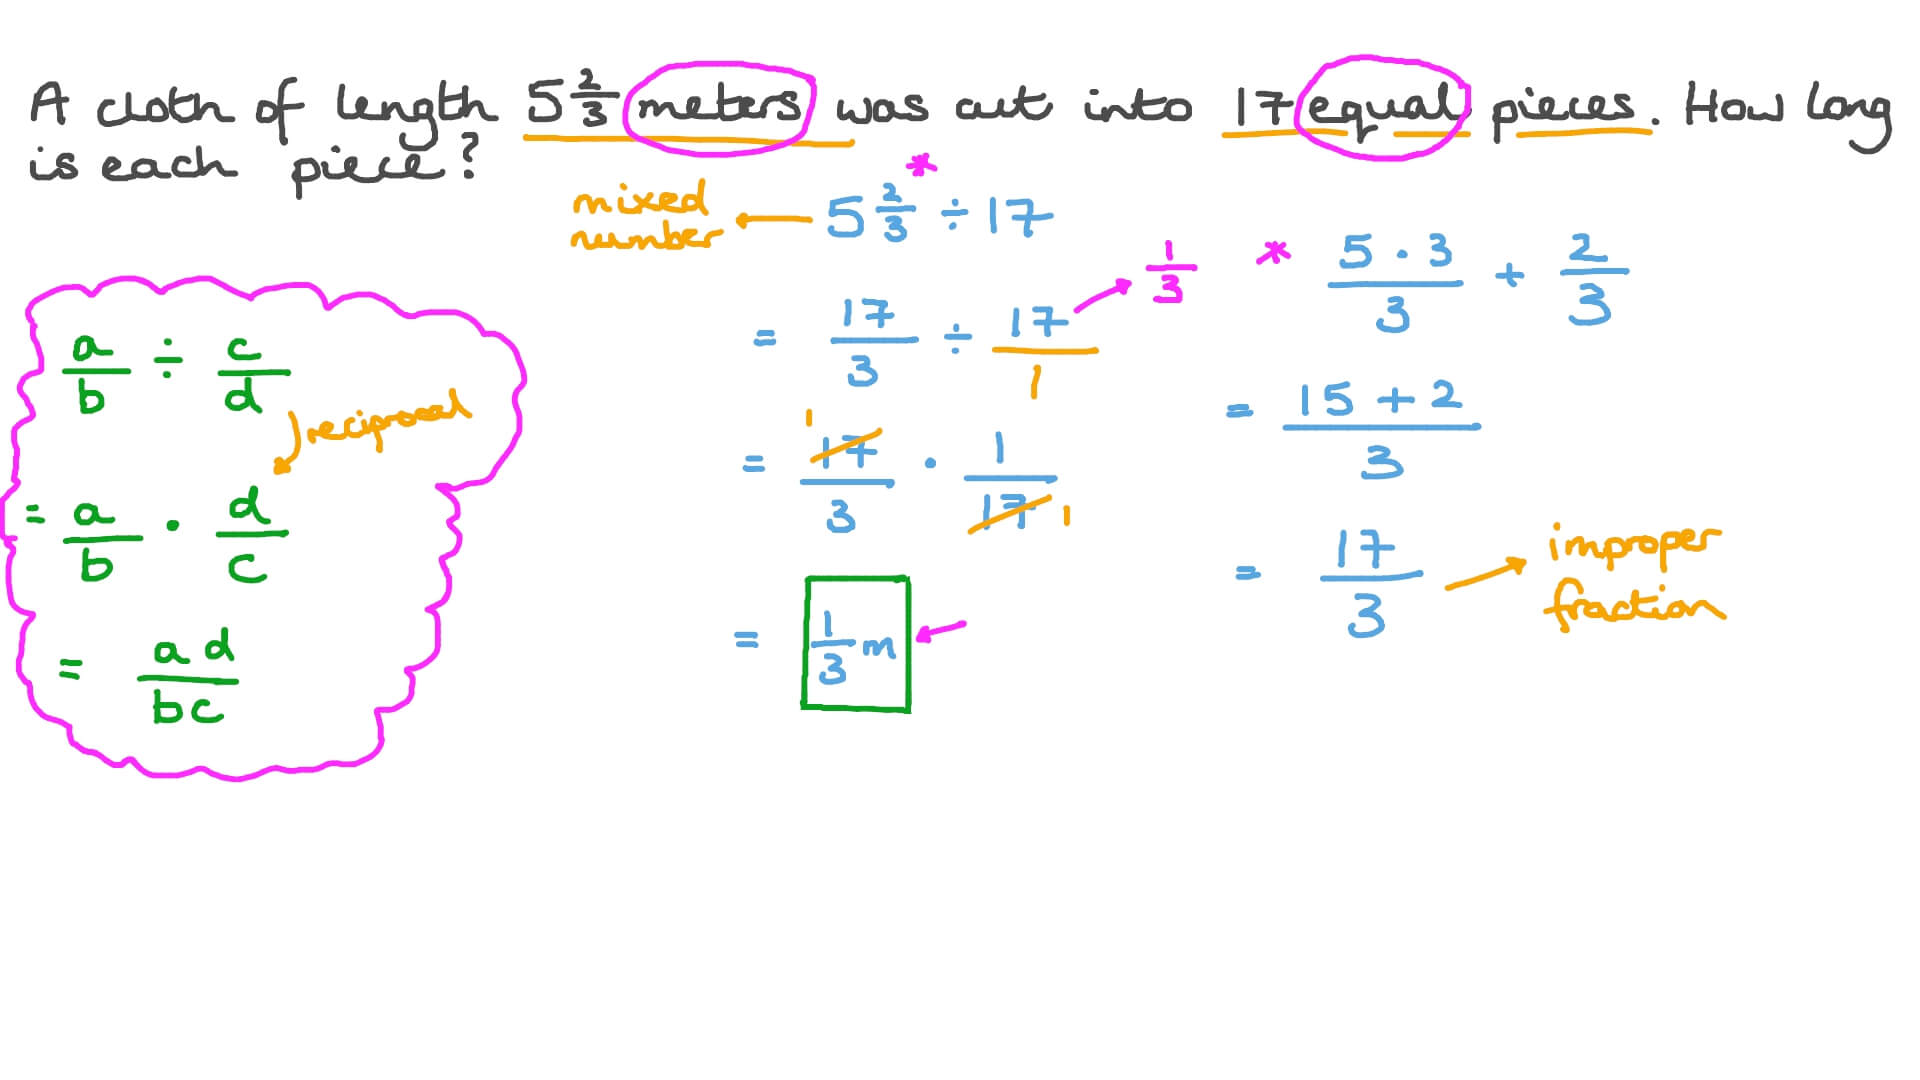 A cloth of length 5 2/3 meters was cut into 17 equal pieces. How long
is each piece?
*
mixed
number
5 2/3 ÷ 17
= 17/3 ÷ 17/1
1/3
= 17/3 · 1/17
1
1
= 1/3 m
* 5 · 3/3 + 2/3
= 15 + 2/3
= 17/3
improper
fraction
a/b ÷ c/d
reciprocal
= a/b · d/c
= ad/bc